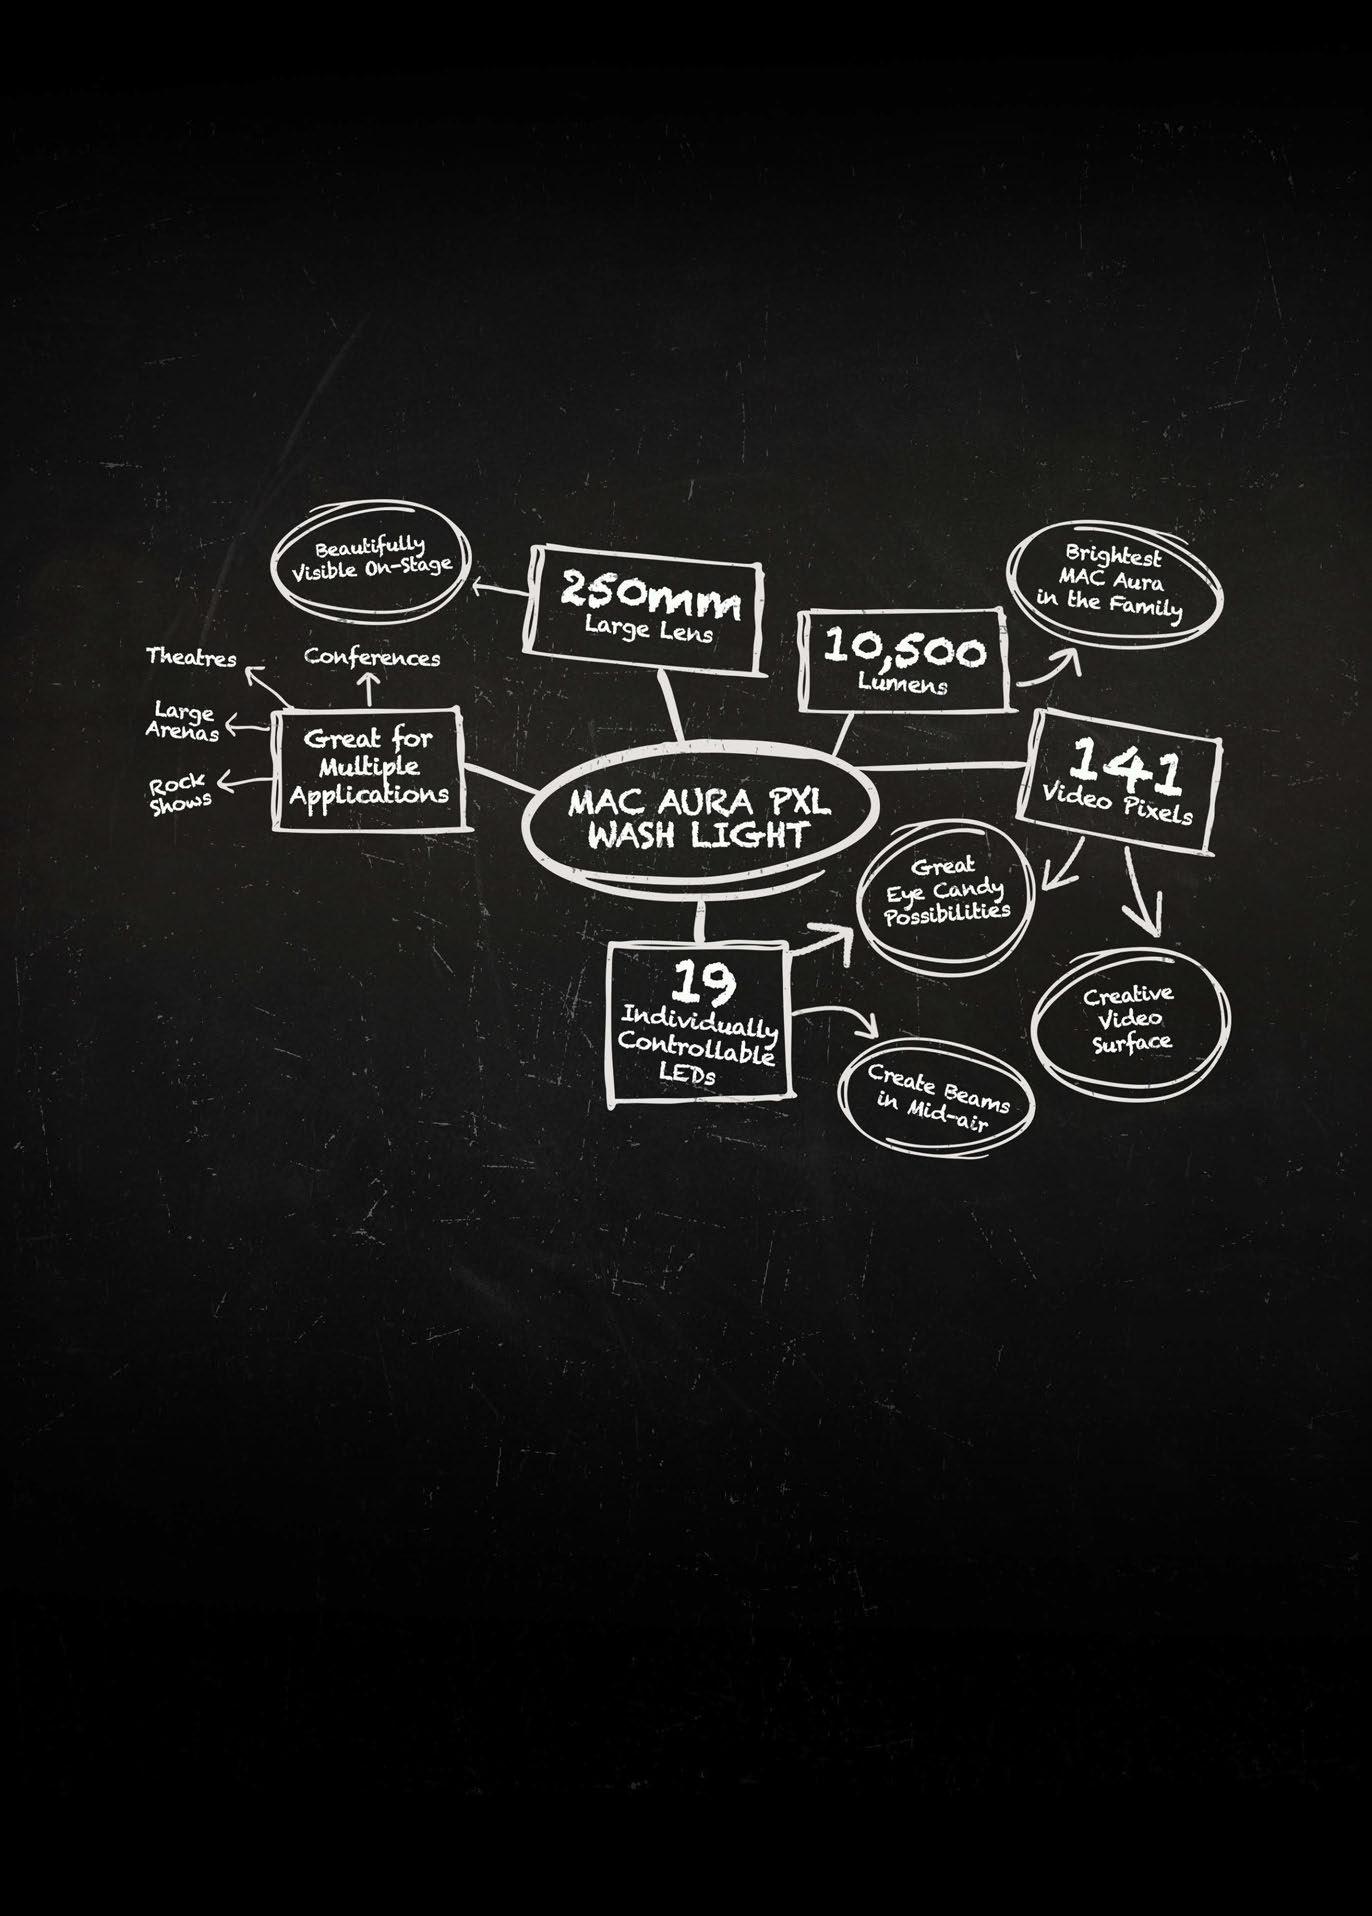 Beautifully
Visible On-Stage
250mm
Large Lens
10,500
Lumens
Brightest
MAC Aura
in the Family
Theatres
Conferences
Large
Arenas
Rock
Shows
Great for
Multiple
Applications
MAC AURA PXL
WASH LIGHT
141
Video Pixels
Great
Eye Candy
Possibilities
19
Individually
Controllable
LEDs
Creative
Video
Surface
Create Beams
in Mid-air